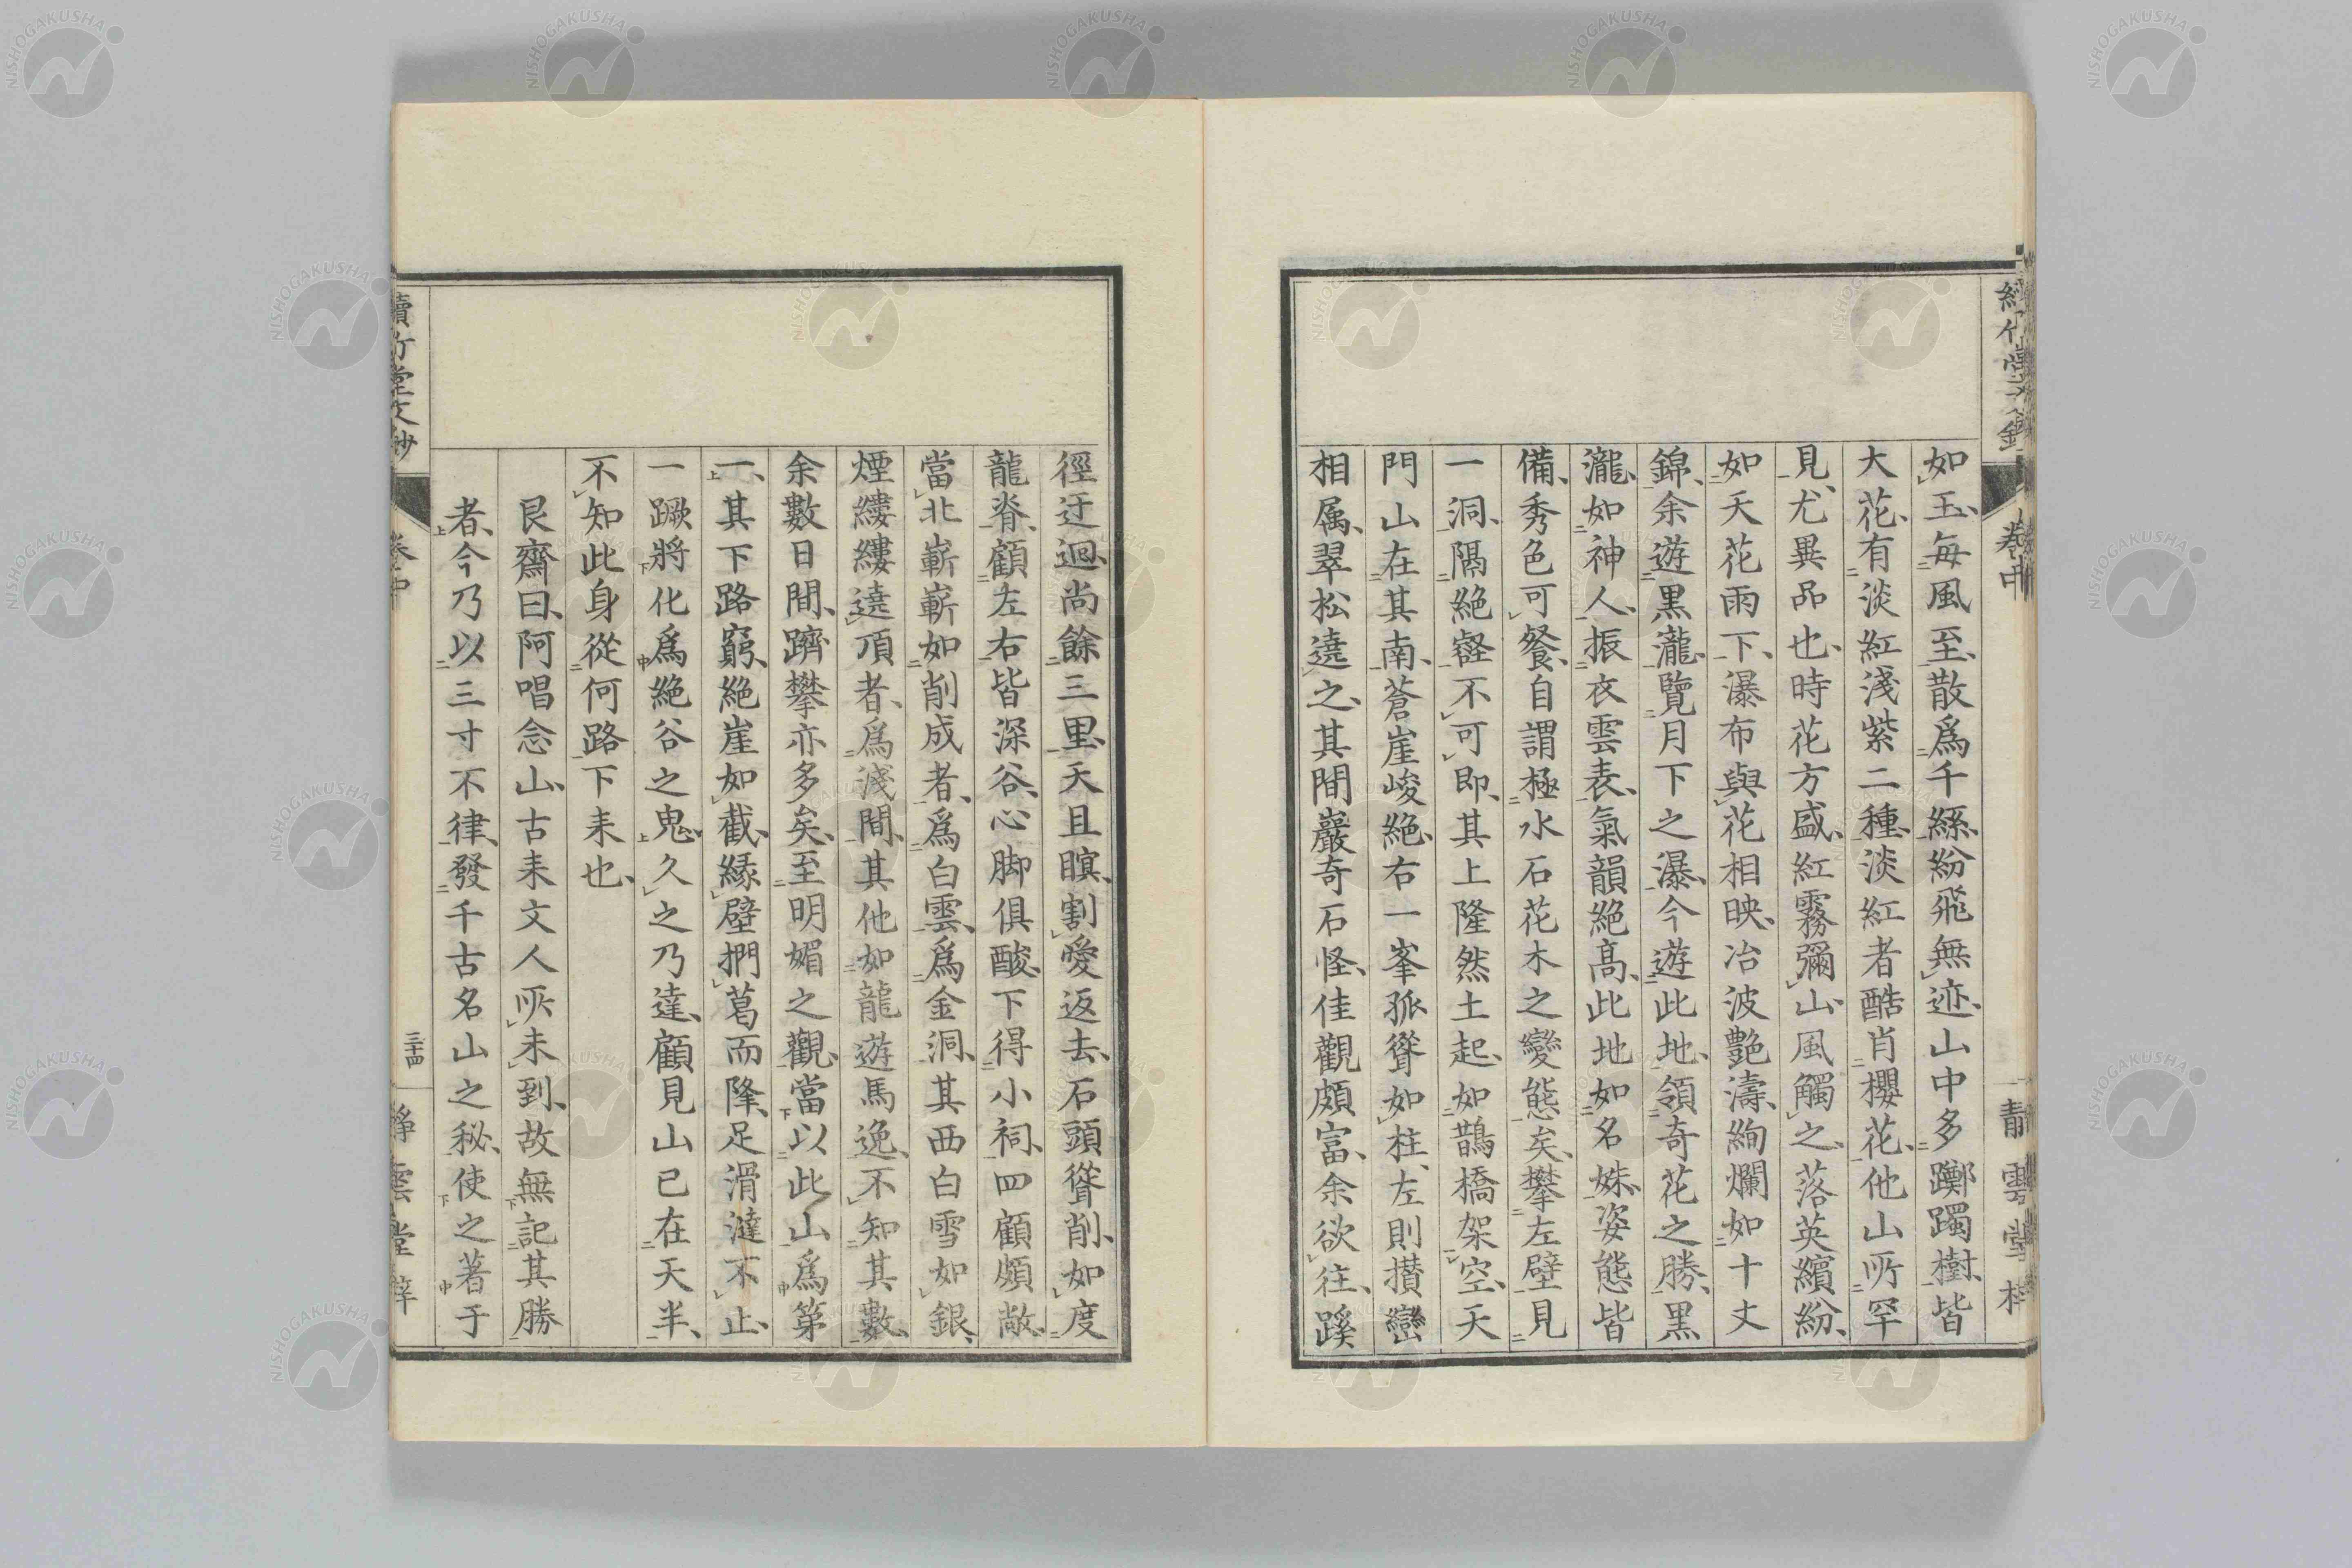 如玉、每風至、散爲千絲、紛飛無迹、山中多躑躅樹、皆
大花、有淡紅淺紫二種、淡紅者酷肖櫻花、他山所罕
見、尤異品也、時花方盛、紅霧彌山、風觸之、落英繽紛、
如天花雨下、瀑布與花相映、冶波艷濤、絢爛如十丈
錦、余遊黑瀧、覽月下之瀑、今遊此地、領奇花之勝、黑
瀧、如神人振衣雲表、氣韻絕高、此地如名姝、姿態皆
備、秀色可餐、自謂極水石花木之變態矣、攀左壁見
一洞、隔絕壑不可即、其上隆然土起、如鵲橋架空、天
門山在其南、蒼崖峻絕、右一峯孤聳如柱、左則攅巒
相属、翠松遶之、其間巖奇石怪、佳觀頗富、余欲往、蹊
徑迂迴、尚餘三里、天且瞑、割愛返去、石頭聳削、如度
龍脊、顧左右皆深谷、心脚俱酸、下得小祠、四顧頗敞、
當北嶄嶄如削成者、爲白雲、爲金洞、其西白雪如銀、
煙縷縷遶頂者、爲淺間、其他如龍遊馬逸、不知其數、
余數日間、躋攀亦多矣、至明媚之觀、當以此山爲第
一、其下路窮、絕崖如截、緣壁捫葛而降、足滑澾不止、
一蹶將化爲絕谷之鬼、久之乃達、顧見山已在天半、
不知此身從何路下来也、
艮齋曰、阿唱念山、古来文人所未到、故無記其勝
者、今乃以三寸不律、發千古名山之秘、使之著于
讀竹堂文鈔
卷中
三十四
靜雲堂梓